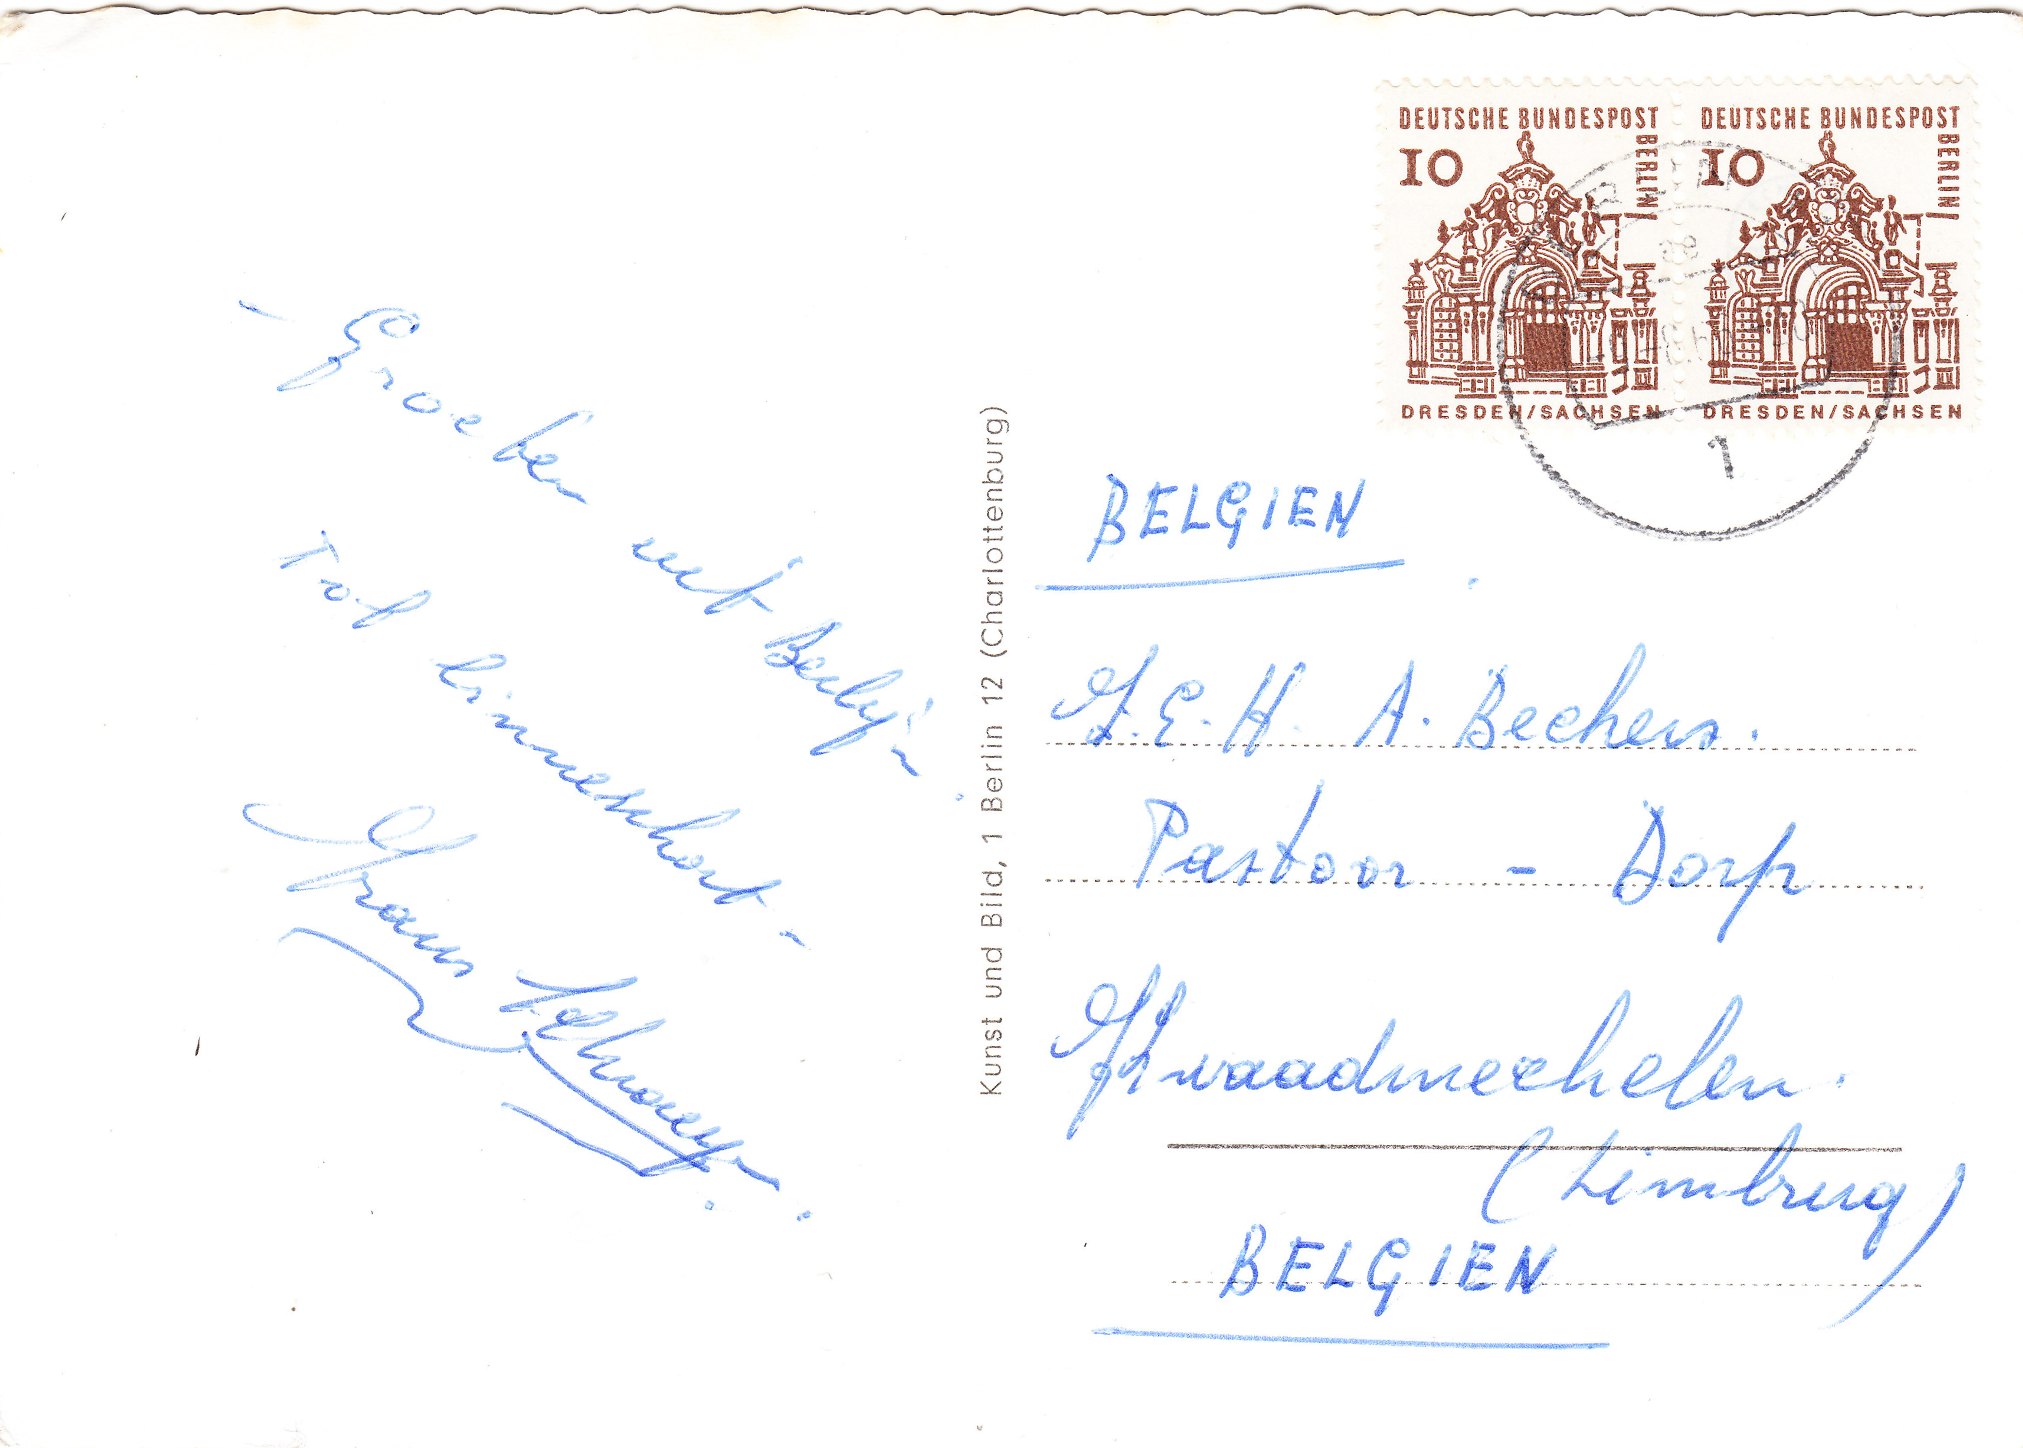 DEUTSCHE BUNDESPOST
BERLIN
10
DRESDEN/SACHSEN
DEUTSCHE BUNDESPOST
BERLIN
10
DRESDEN/SACHSEN
1
- Groeten uit Berlijn.
Tot binnenkort -
Frans
Kunst und Bild, 1 Berlin 12 (Charlottenburg)
BELGIEN
Z.E.H. A. Beckers.
Pastoor - Dorp
Kwaadmechelen.
(Limburg)
BELGIEN